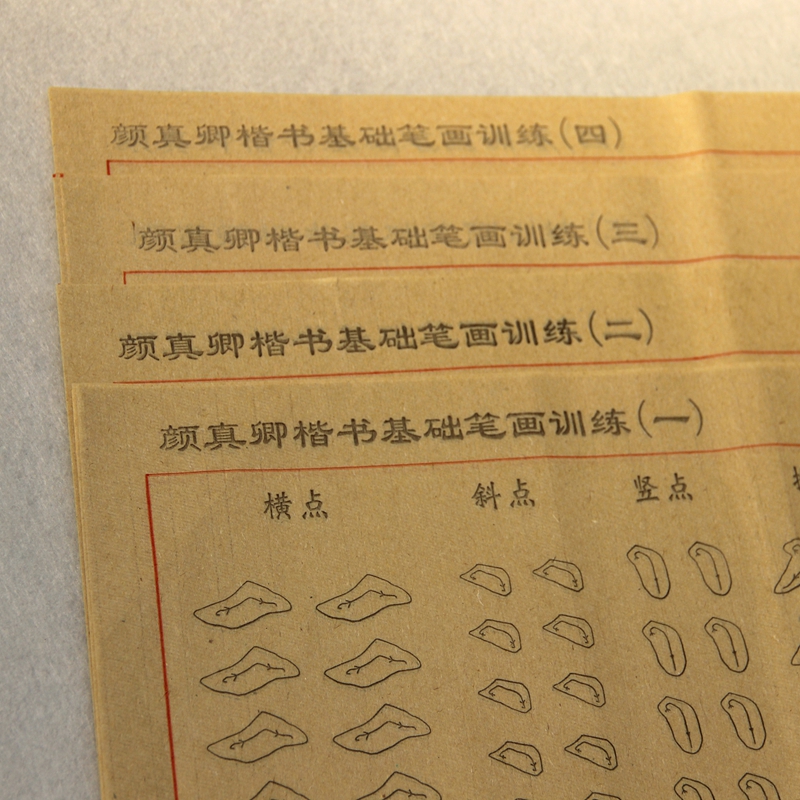 颜真卿楷书基础笔画训练(四)
颜真卿楷书基础笔画训练(三)
颜真卿楷书基础笔画训练(二)
颜真卿楷书基础笔画训练(一)
横点 斜点 竖点